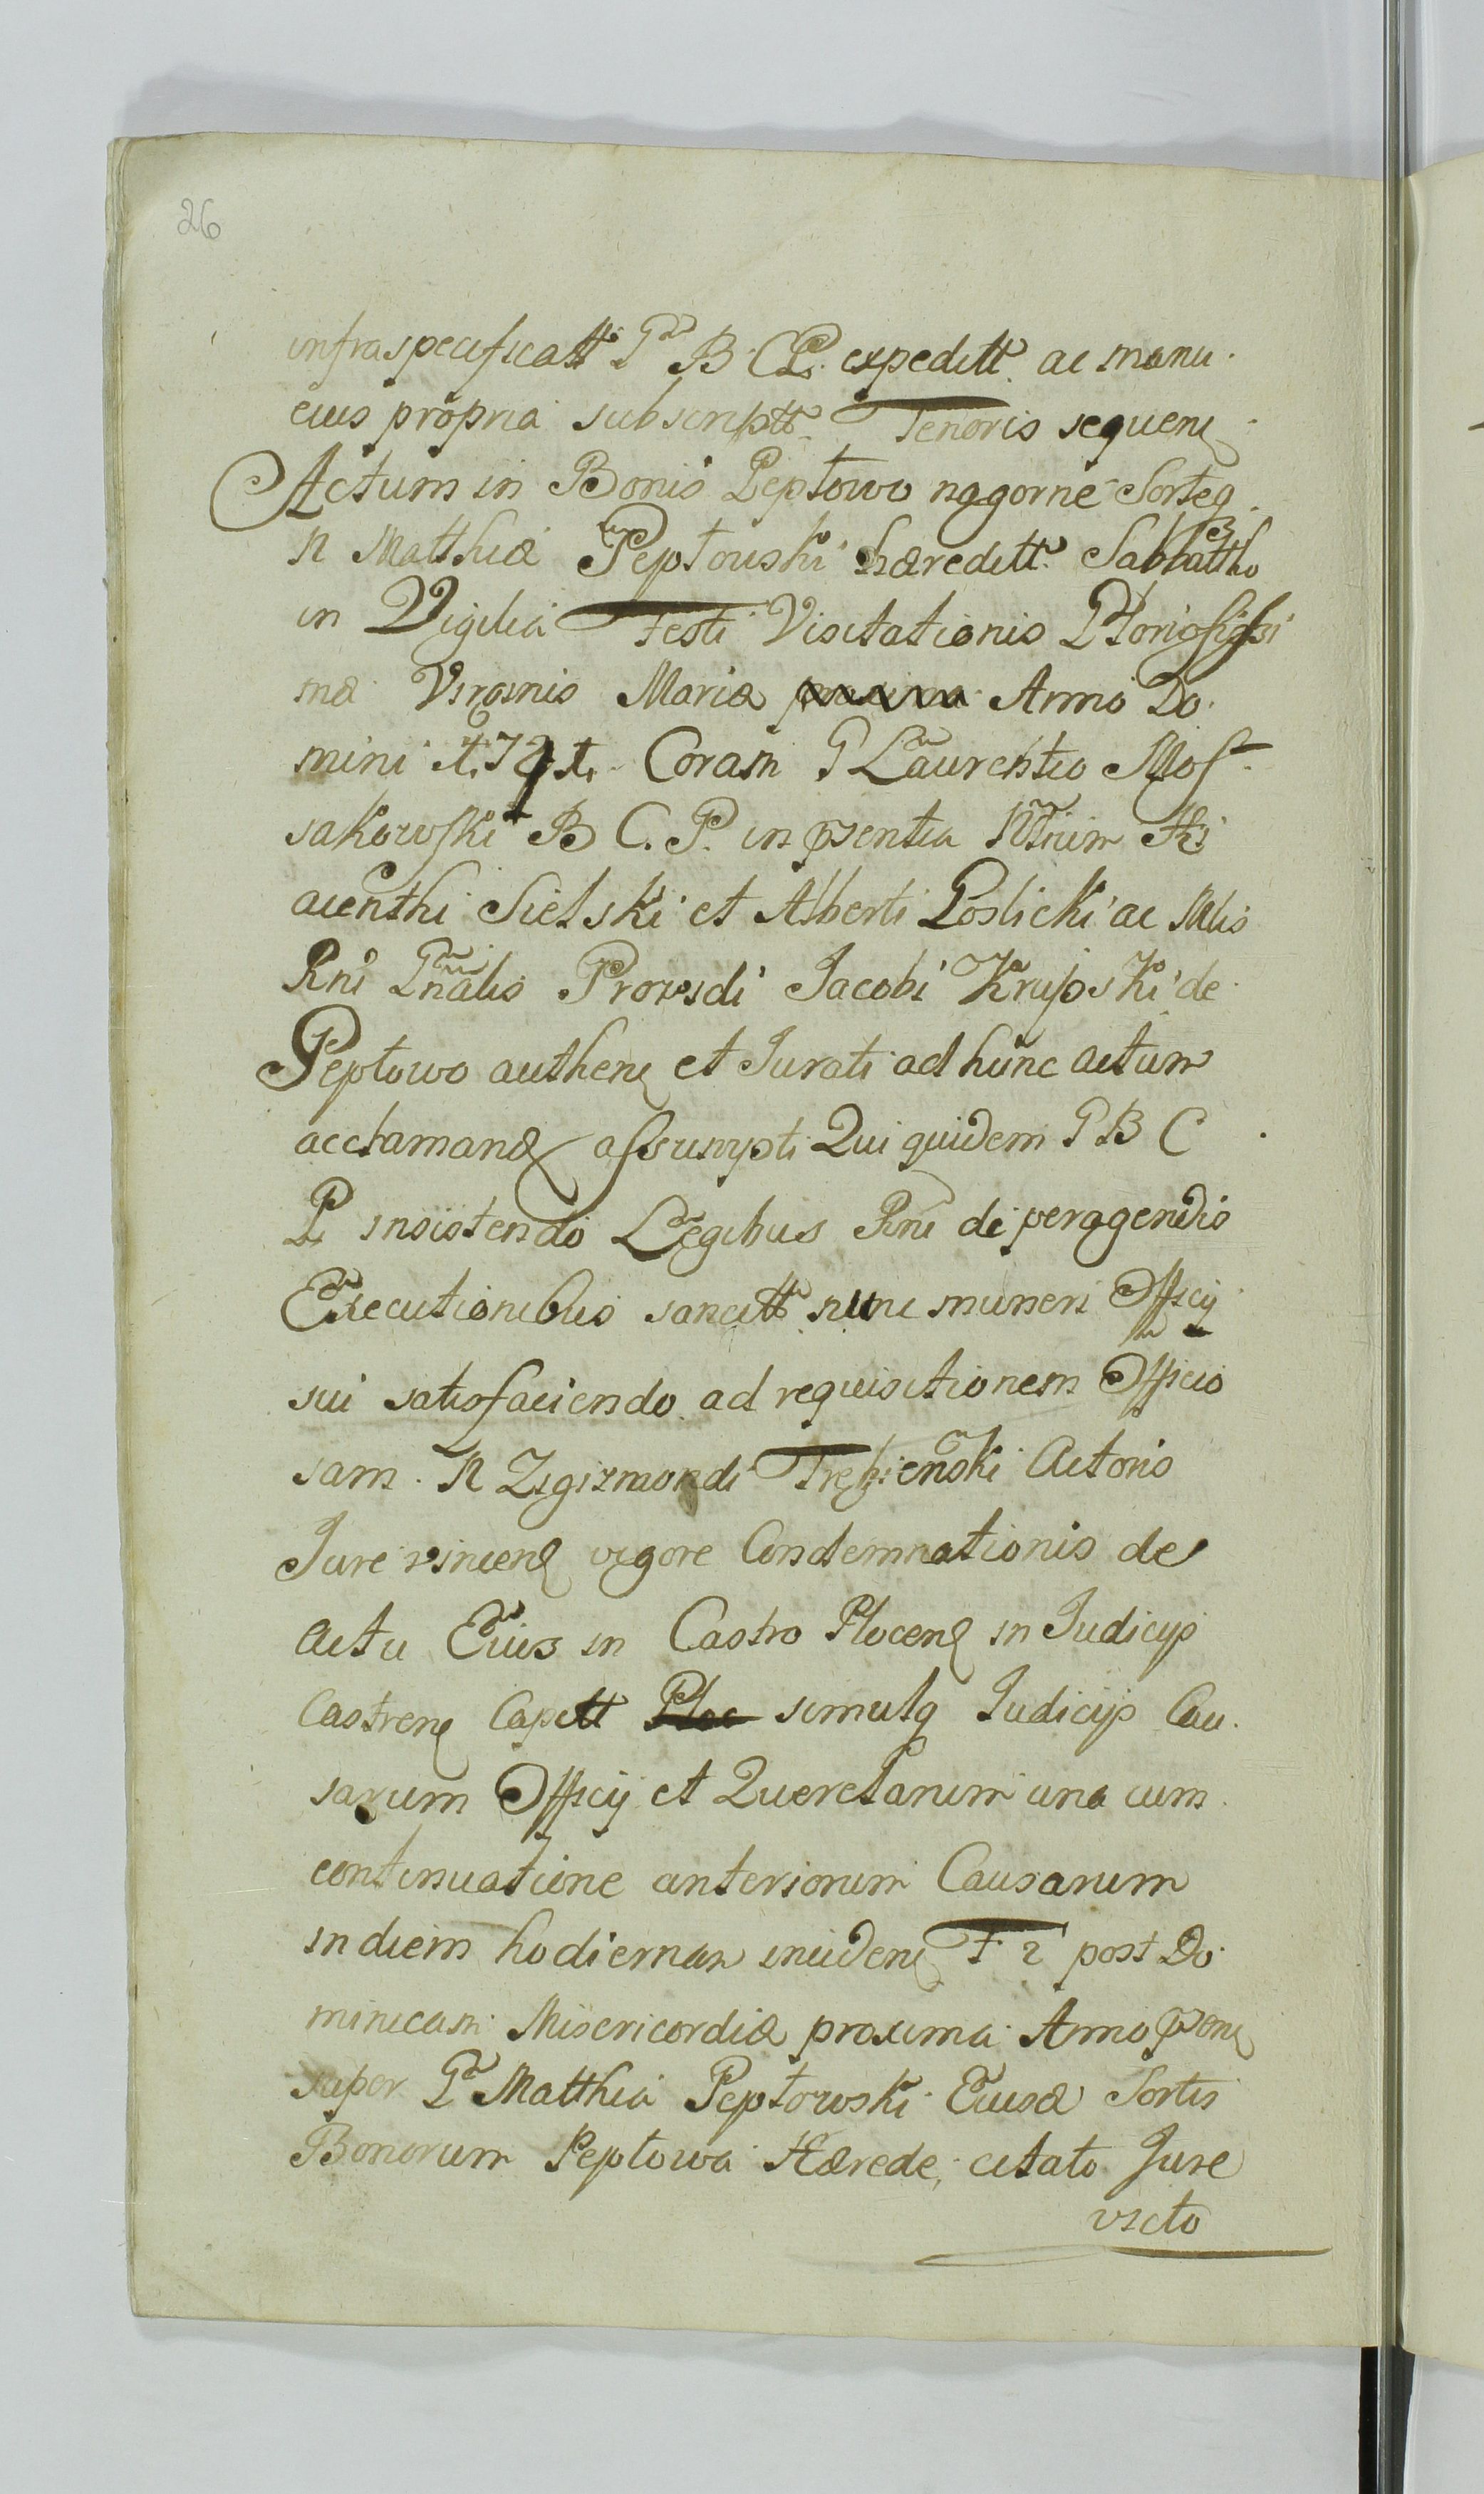 26
infraspecificatt G B C P. expeditt. ac manu
eius propria subscriptt. Tenoris sequen
Actum in Bonis Peptowo nagorne Sorteq
N Matthiæ Peptowski hæreditt. Sabbattho
in Vigilia Festi Visitationis Gloriosissi
mæ Virginis Mariæ Anno Do
mini Coram G Laurentio Mos
sakowski B C. P. in psentia Nriũm Hi
acenthi Sielski et Alberti Goslicki ac Mlis
Rni Gnãlis Provsdi Jacobi Krupski de
Peptowo authen et Jurati ad hunc actum
acclamand assumpti Qui quidem G B C
P insistendo Legibus Rni de peragendis
Executionibus sancitt nunc muneri Officij
sui satisfaciendo ad requisitionem Officio
sam. N Zigizmondi Actoris
Jure vincen vigore Condemnationis de
actu Eius in Castro Plocen in Judicijs
Castren Capitt Ploc simulq Judicijs Cau
sarum Officij et Querelarum una cum
continuatione anteriorum Causarum
in diem hodiernam inciden F 2 post Do
minicam Misericordiæ proxima Anno psen
super G Matthia Peptowski Eiusd Sortis
Bonorum Peptowa Hærede, citato Jure
victo